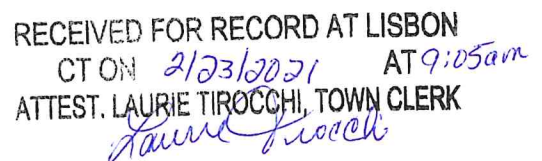 RECEIVED FOR RECORD AT LISBON
CT ON 2/23/2021 AT 9:05am
ATTEST. LAURIE TIROCCHI, TOWN CLERK
Laurie Tirocchi